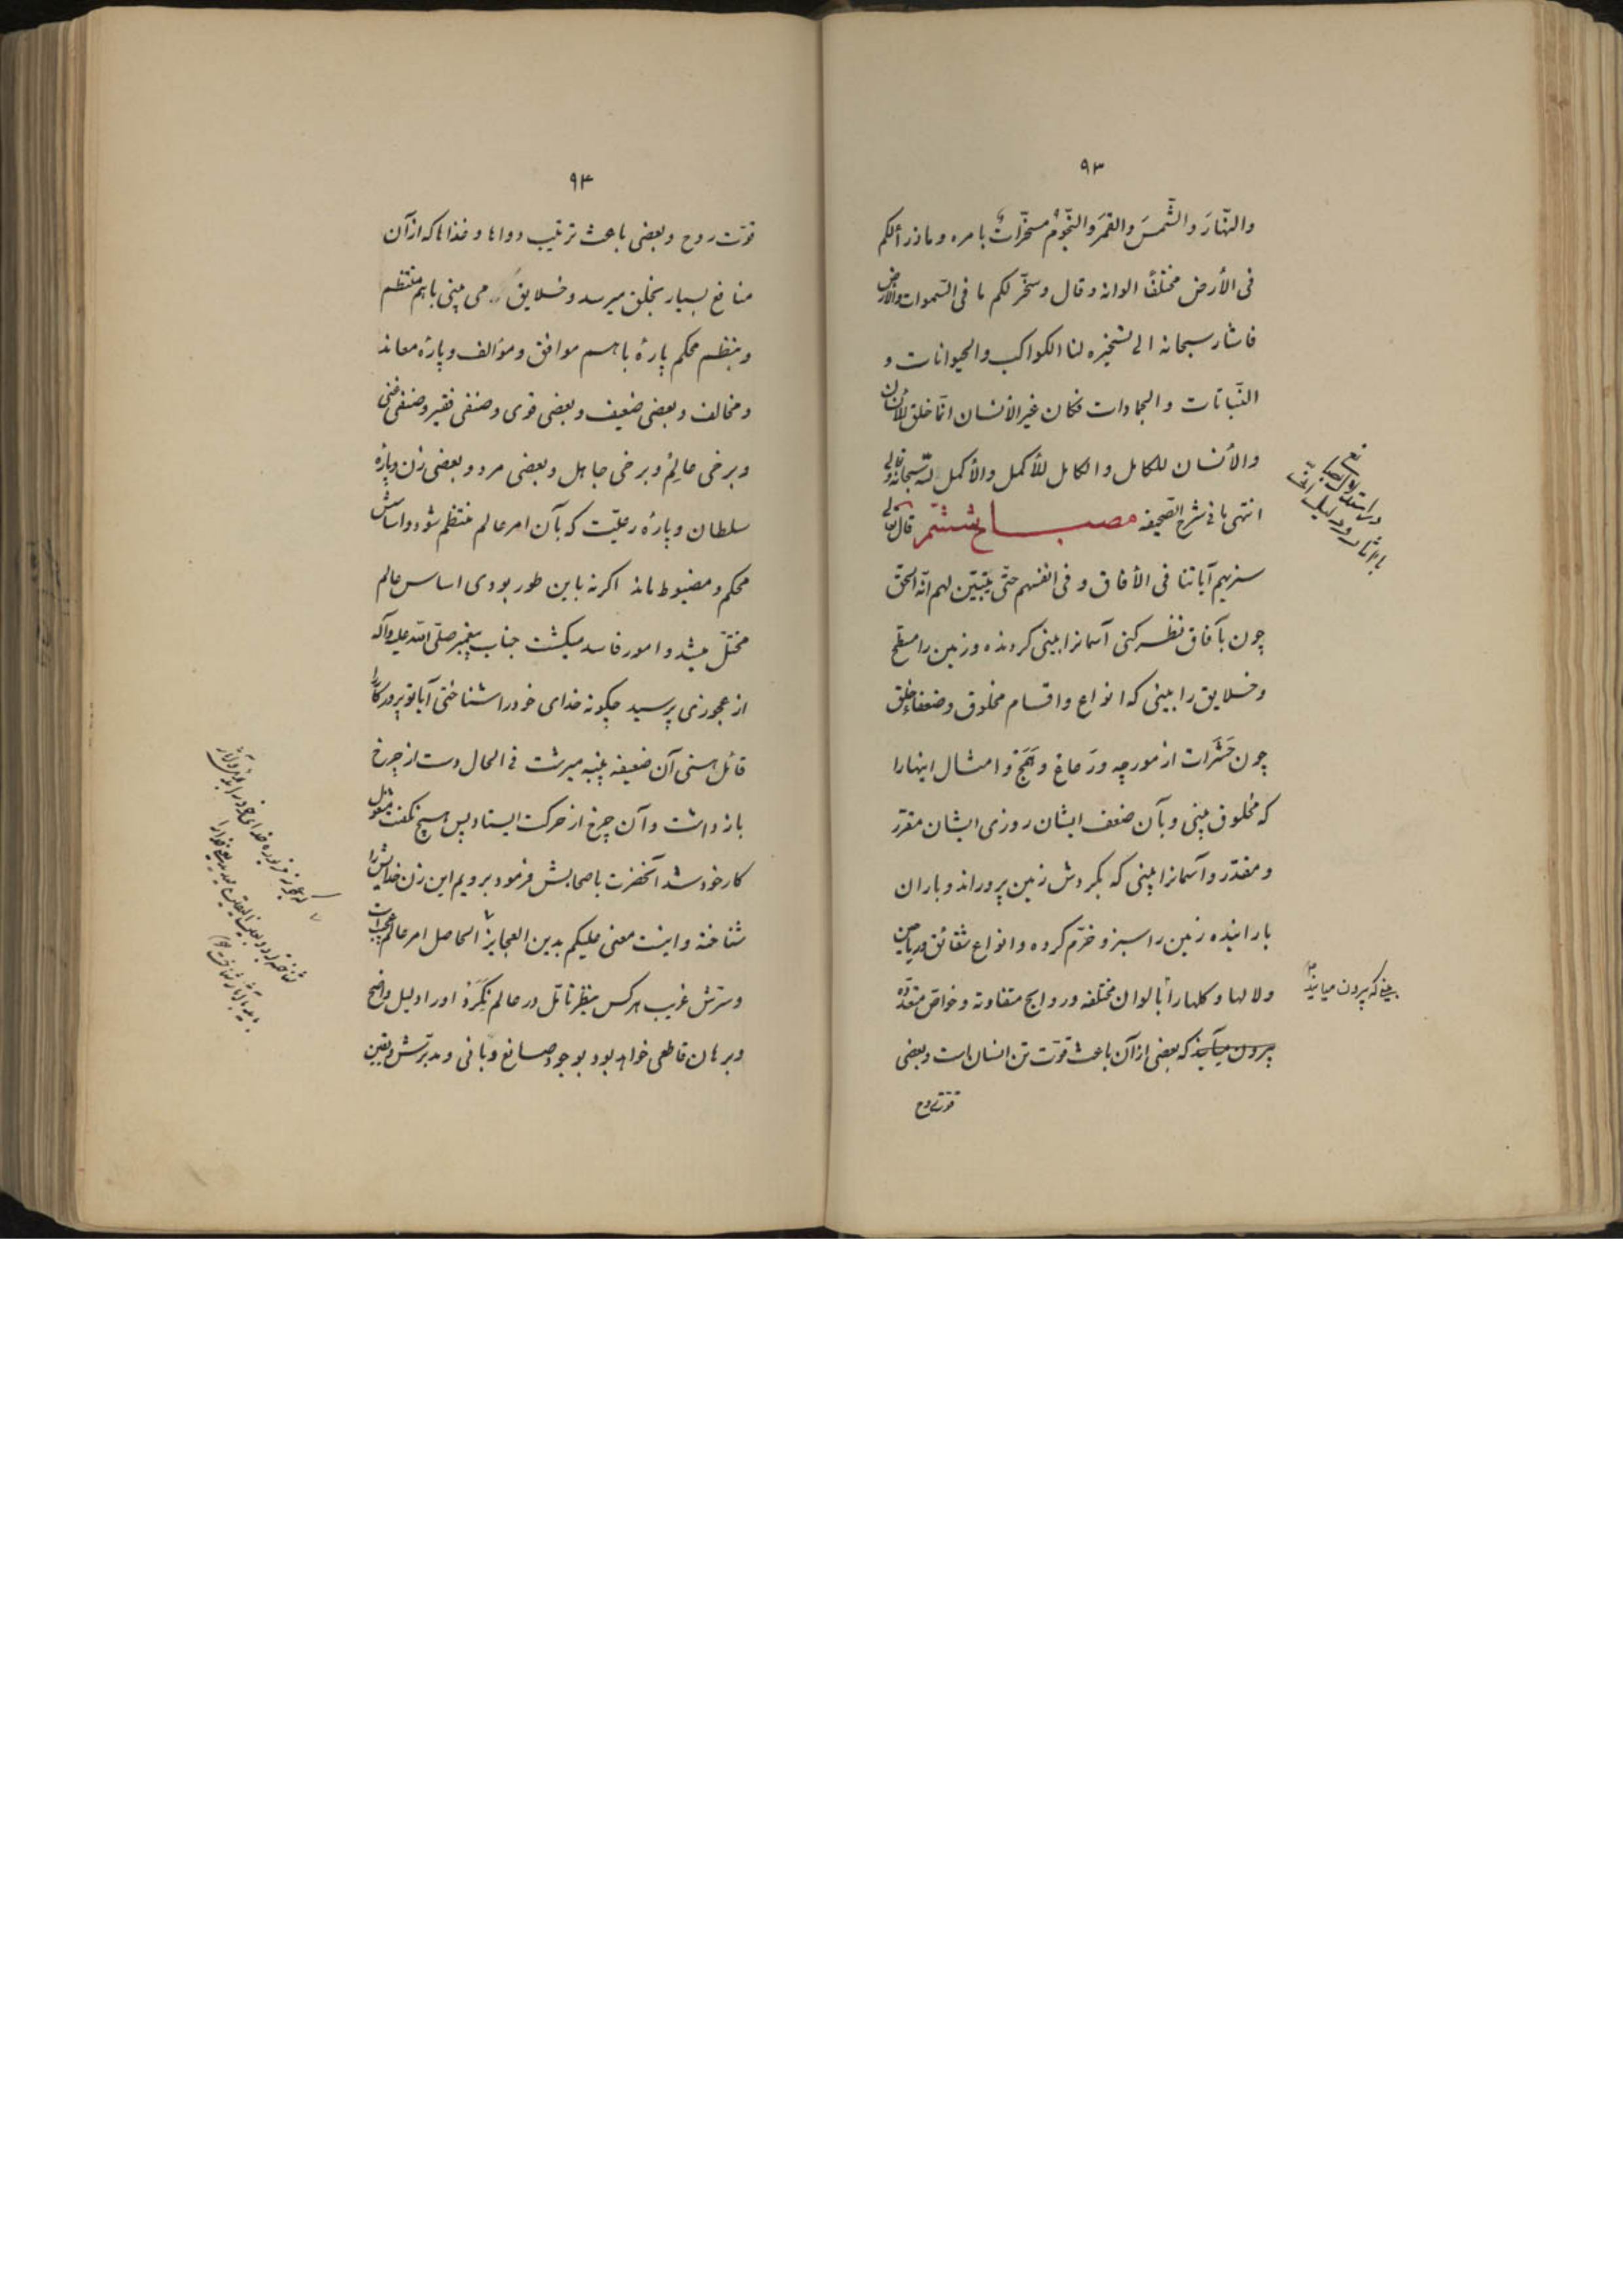 ۹۳
والنّهارَ والشّمسَ والقمَرَ والنّجومُ مسخّراتٌ بامره و ماذرألکم
فی الأرض مختلفًا الوانه و قال و سخّر لکم ما فی السّموات والأرض
فاشار سبحانه الی تسخیره لنا الکواکب والحیوانات و
النّباتات والجمادات فکان غیر الأنسان انّما خلق للأنسان
والأنسان للکامل والکامل للأکمل والأکمل للّه سبحانه و تعالی
انتهی ما فی شرح الصّحیفه مصباح ششم قال تعالی
سنریهم آیاتنا فی الأفاق و فی انفسهم حتّی یتبیّن لهم انّه الحقّ
چون بآفاق نظر کنی آسمانرا بینی کردنده و زمین را مسطّح
و خلایق را بینی که انواع و اقسام مخلوق و ضعفاء خلق
چون حَشَرات از مورچه و و هَمَج و امثال اینهارا
که مخلوق بینی و بآن ضعف ایشان روزی ایشان مقرّر
و مقدّر و آسمانرا بینی که بکردش زمین پروراند و باران
بارانیده زمین را سبز و خرّم کرده و انواع شقائق و ریاحین
و لالها و کلهارا بالوان مختلفه و روایح متفاوته و خواصّ متعدّده
بیرون میآید که بعضی از آن باعث قوّت تن انسان است و بعضی
قوّت روح
در استدلال
بآثار و دلیل
بینی که بیرون میآید
۹۴
قوّت روح و بعضی باعث ترتیب دواها و غذاها که از آن
منافع بسیار بخلق میرسد و خلایق می بینی باهم منتظم
و بنظم محکم پارهٔ باهم موافق و مؤالف و پارهٔ معاند
و مخالف و بعضی ضعیف و بعضی قوی و صنفی فقیر و صنفی غنی
و برخی عالِم و برخی جاهل و بعضی مرد و بعضی زن و پارهٔ
سلطان و پارهٔ رعیّت که بآن امر عالم منتظم شود و اساسش
محکم و مضبوط ماند اکر نه باین طور بودی اساس عالم
مختلّ میشد و امور فاسد میکشت جناب پیغمبر صلّی اللّه علیه وآله
از عجوزی پرسید چکونه خدای خود را شناختی آیا تو پروردکاررا
قائل هستی آن ضعیفه پنبه میرشت فی الحال دست از چرخ
بازداشت و آن چرخ از حرکت ایستاد پس هیچ نکفت مشغول
کار خود شد آنحضرت باصحابش فرمود برویم این زن خدایش را
شناخته و اینست معنی علیکم بدین العجایز الحاصل امر عالم عجیب است
و سرّش غریب هر کس بنظر تأمّل در عالم نکَرَد اورا دلیل واضح
و برهان قاطعی خواهد بود بوجود صانع و بانی و مدبّرش و یقین